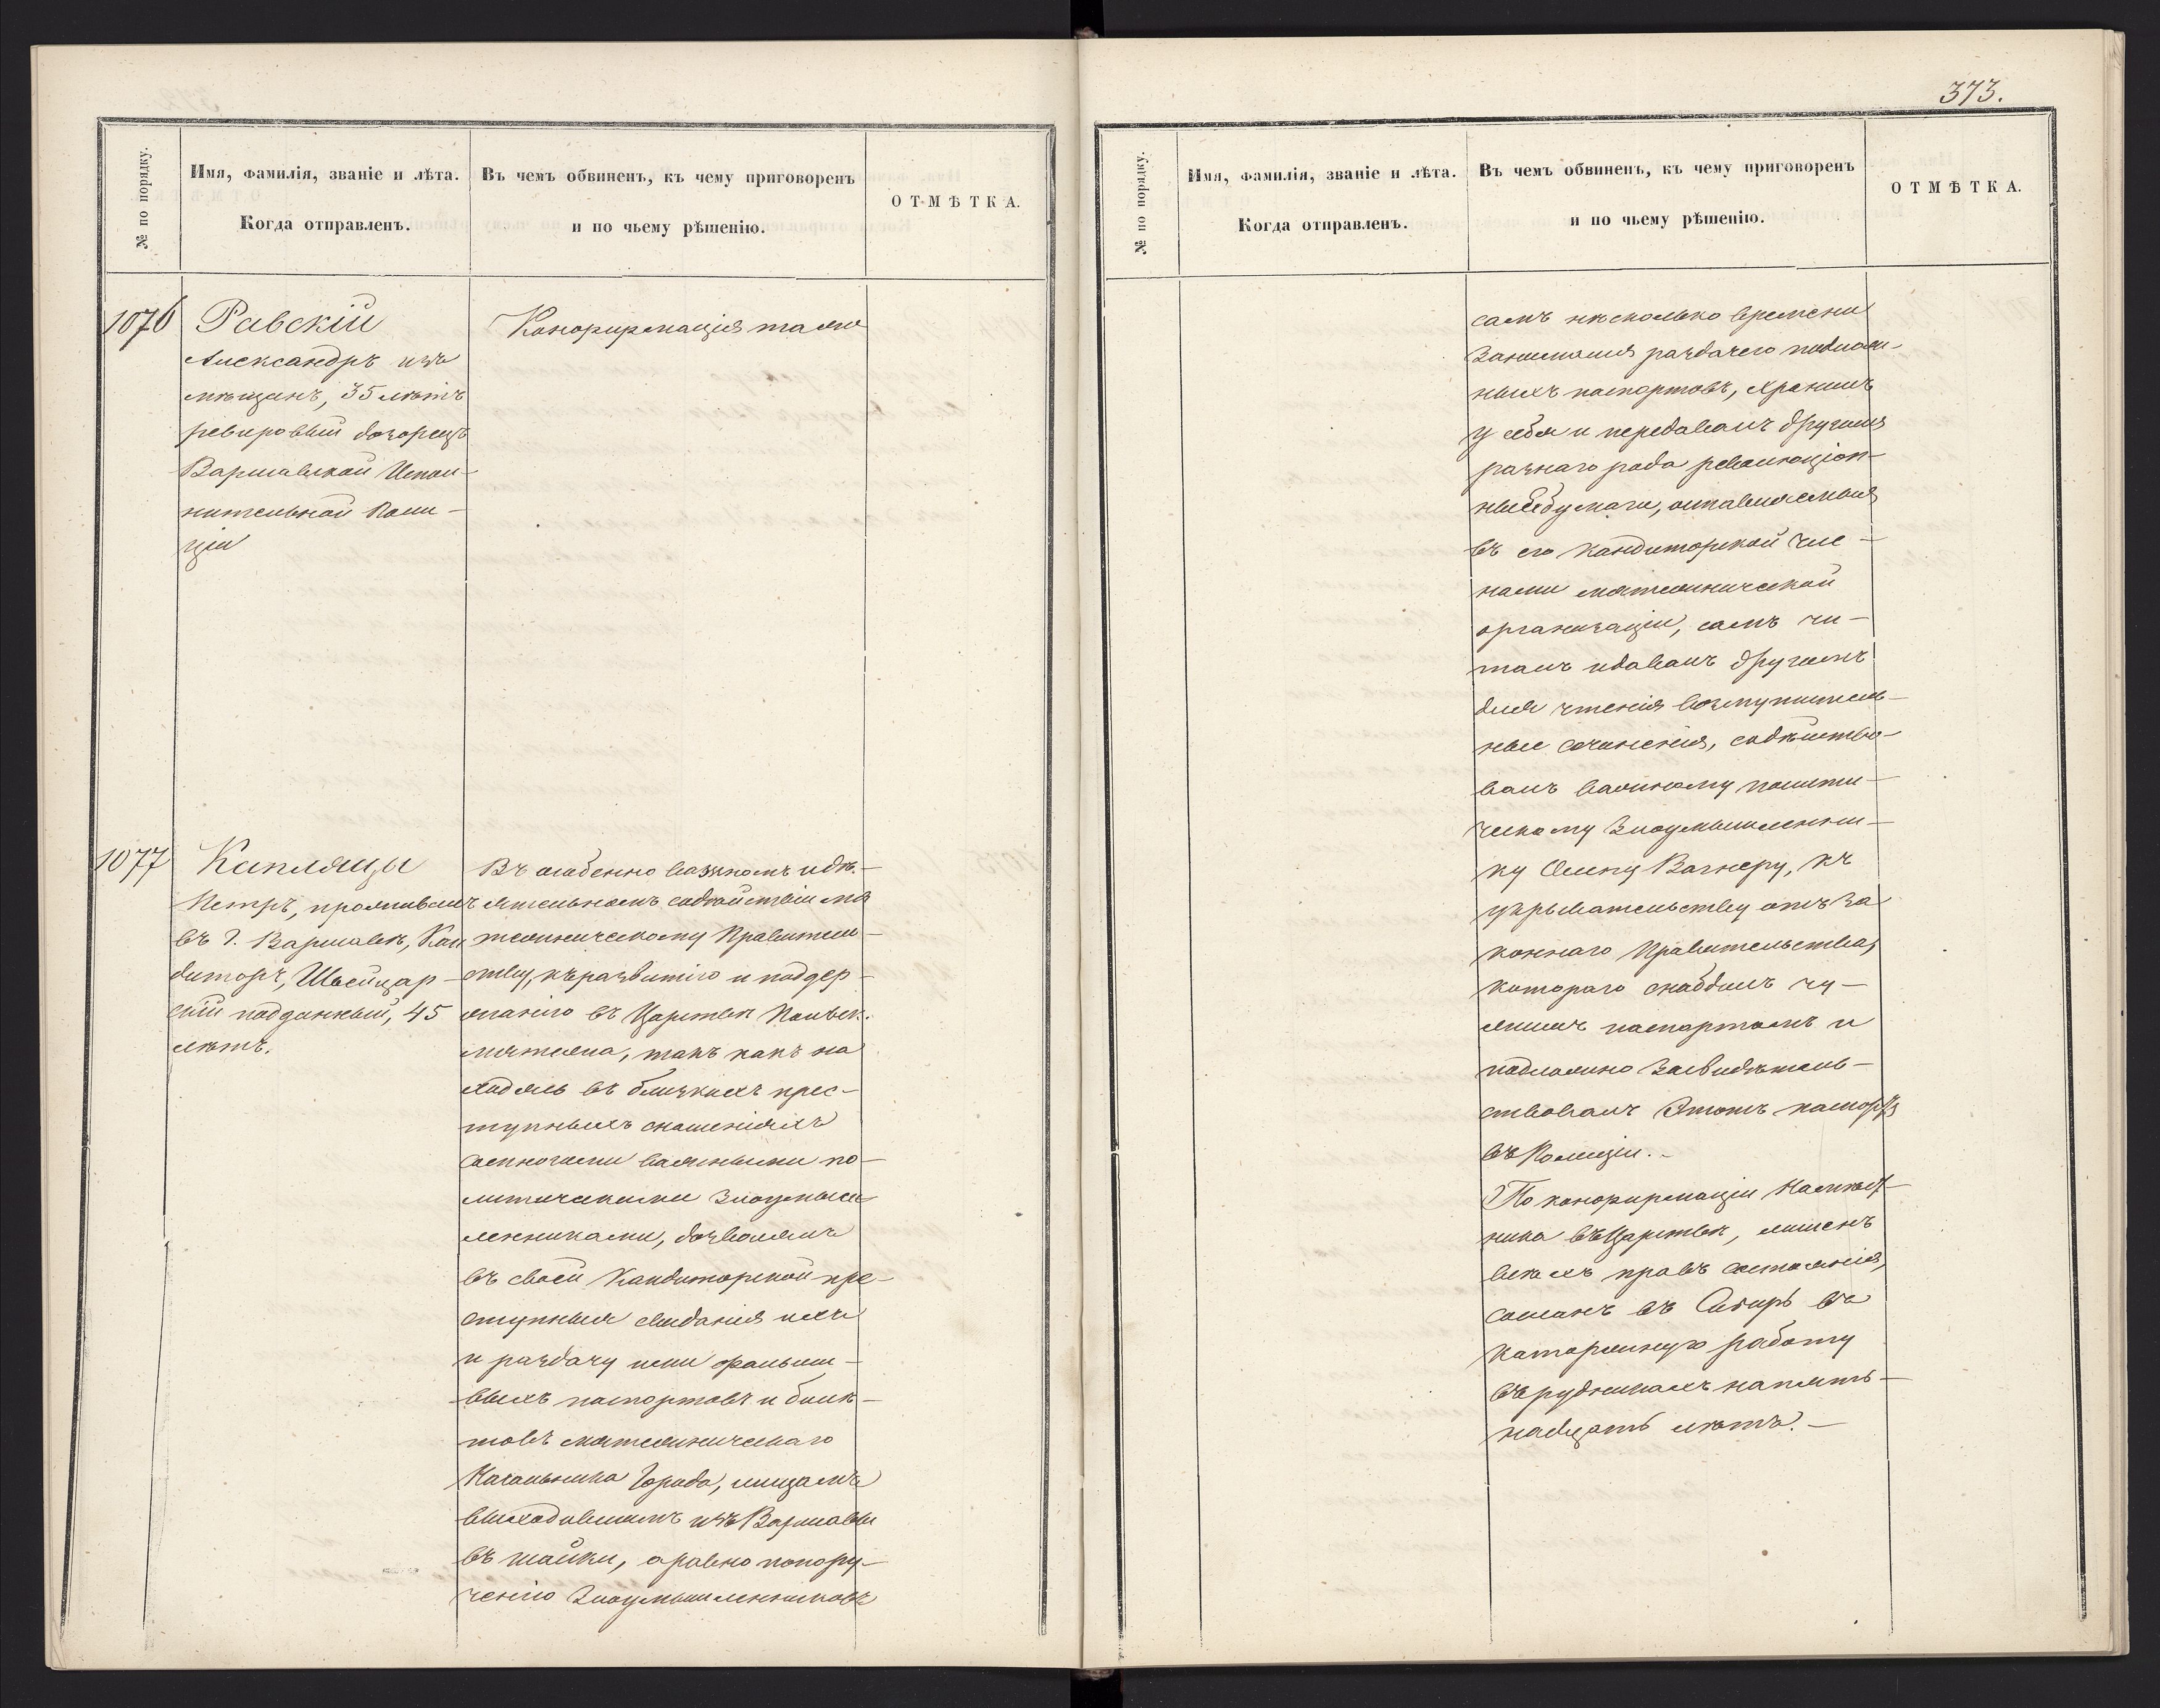 № по порядку.
Имя, фамилія, званіе и лѣта.
Когда отправленъ.
Въ чемъ обвиненъ, къ чему приговоренъ
и по чьему рѣшенію.
ОТМѢТКА.
1076
Равскій
Александръ изъ
мѣщанъ, 35 лѣтъ
ревировый дозорецъ
Варшавской Испол-
нительной Поли-
ціи
Конфирмація таже
1077
Капляцы
Петръ, проживалъ
въ г. Варшавѣ, Кан
диторъ, Швейцар-
скій подданный, 45
лѣтъ.
Въ особенно важномъ и дѣ-
ятельномъ содѣйствіи мя
тежническому Правитель-
ству, къ развитію и поддер-
жанію въ Царствѣ Польск.
мятежа, такъ какъ на
ходясь въ близкихъ прес-
тупныхъ сношеніяхъ
со многими важными по-
литическими злоумыш
ленниками, дозволялъ
въ своей Кандиторской пре-
ступныя свиданія ихъ
и раздачу ими фальши-
выхъ паспортовъ и биле-
товъ мятежническаго
Начальника Города, лицамъ
выходившимъ изъ Варшавы
въ шайки, а равно по пору-
ченію злоумышленниковъ
373.
№ по порядку.
Имя, фамилія, званіе и лѣта.
Когда отправленъ.
Въ чемъ обвиненъ, къ чему приговоренъ
и по чьему рѣшенію.
ОТМѢТКА.
самъ нѣсколько времени
занимался раздачею подлож-
ныхъ паспортовъ, хранилъ
у себя и передавалъ другимъ
разнаго рода революціон-
ные бумаги, оставляемыя
въ его Кандиторской чле-
нами мятежнической
организаціи, самъ чи-
талъ и давалъ другимъ
для чтенія возмутитель-
ные сочиненія, содѣйство-
валъ важному полити-
ческому злоумышленни-
ку Вагнеру, къ
укрывательству отъ за
коннаго Правительства,
котораго снабдилъ чу-
жимъ паспортомъ и
подложно засвидѣтель-
ствовалъ этотъ паспортъ
въ Полиціи.-
По конфирмаціи Намѣст-
ника въ Царствѣ, лишенъ
всѣхъ правъ состоянія,
сосланъ въ Сибирь въ
каторжную работу
въ рудникахъ на пят-
надцать лѣтъ.-